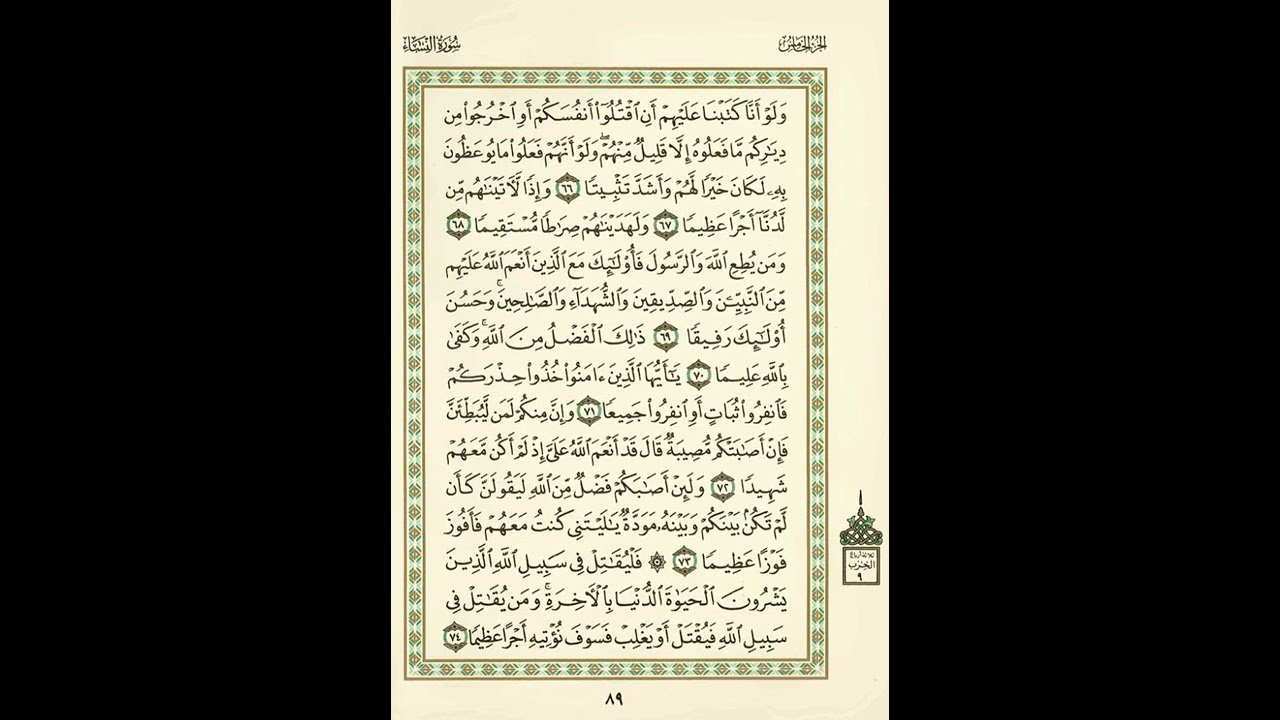 الجزء الخامس
سورة النساء
وَلَوْ أَنَّا كَتَبْنَا عَلَيْهِمْ أَنِ ٱقْتُلُوٓا۟ أَنفُسَكُمْ أَوِ ٱخْرُجُوا۟ مِن
دِيَٰرِكُم مَّا فَعَلُوهُ إِلَّا قَلِيلٌ مِّنْهُمْ ۖ وَلَوْ أَنَّهُمْ فَعَلُوا۟ مَا يُوعَظُونَ
بِهِۦ لَكَانَ خَيْرًا لَّهُمْ وَأَشَدَّ تَثْبِيتًا ٦٦ وَإِذًا لَّءَاتَيْنَٰهُم مِّن
لَّدُنَّآ أَجْرًا عَظِيمًا ٦٧ وَلَهَدَيْنَٰهُمْ صِرَٰطًا مُّسْتَقِيمًا ٦٨
وَمَن يُطِعِ ٱللَّهَ وَٱلرَّسُولَ فَأُو۟لَٰٓئِكَ مَعَ ٱلَّذِينَ أَنْعَمَ ٱللَّهُ عَلَيْهِم
مِّنَ ٱلنَّبِيِّۦنَ وَٱلصِّدِّيقِينَ وَٱلشُّهَدَآءِ وَٱلصَّٰلِحِينَ ۚ وَحَسُنَ
أُو۟لَٰٓئِكَ رَفِيقًا ٦٩ ذَٰلِكَ ٱلْفَضْلُ مِنَ ٱللَّهِ ۚ وَكَفَىٰ
بِٱللَّهِ عَلِيمًا ٧٠ يَٰٓأَيُّهَا ٱلَّذِينَ ءَامَنُوا۟ خُذُوا۟ حِذْرَكُمْ
فَٱنفِرُوا۟ ثُبَاتٍ أَوِ ٱنفِرُوا۟ جَمِيعًا ٧١ وَإِنَّ مِنكُمْ لَمَن لَّيُبَطِّئَنَّ
فَإِنْ أَصَٰبَتْكُم مُّصِيبَةٌ قَالَ قَدْ أَنْعَمَ ٱللَّهُ عَلَىَّ إِذْ لَمْ أَكُن مَّعَهُمْ
شَهِيدًا ٧٢ وَلَئِنْ أَصَٰبَكُمْ فَضْلٌ مِّنَ ٱللَّهِ لَيَقُولَنَّ كَأَن
لَّمْ تَكُنۢ بَيْنَكُمْ وَبَيْنَهُۥ مَوَدَّةٌ يَٰلَيْتَنِى كُنتُ مَعَهُمْ فَأَفُوزَ
فَوْزًا عَظِيمًا ٧٣ ۞ فَلْيُقَٰتِلْ فِى سَبِيلِ ٱللَّهِ ٱلَّذِينَ
يَشْرُونَ ٱلْحَيَوٰةَ ٱلدُّنْيَا بِٱلْءَاخِرَةِ ۚ وَمَن يُقَٰتِلْ فِى
سَبِيلِ ٱللَّهِ فَيُقْتَلْ أَوْ يَغْلِبْ فَسَوْفَ نُؤْتِيهِ أَجْرًا عَظِيمًا ٧٤
ثلاثة أرباع
الحزب
٩
٨٩